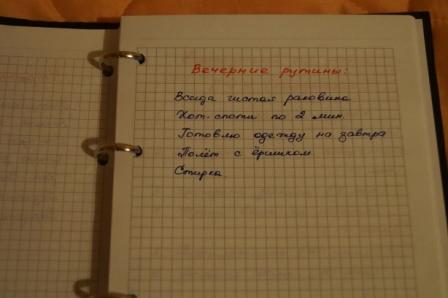 Вечерние рутины:
Всегда чистая раковина
Хот-споты по 2 мин.
Готовлю одежду на завтра
Полёт с ёршиком
Стирка